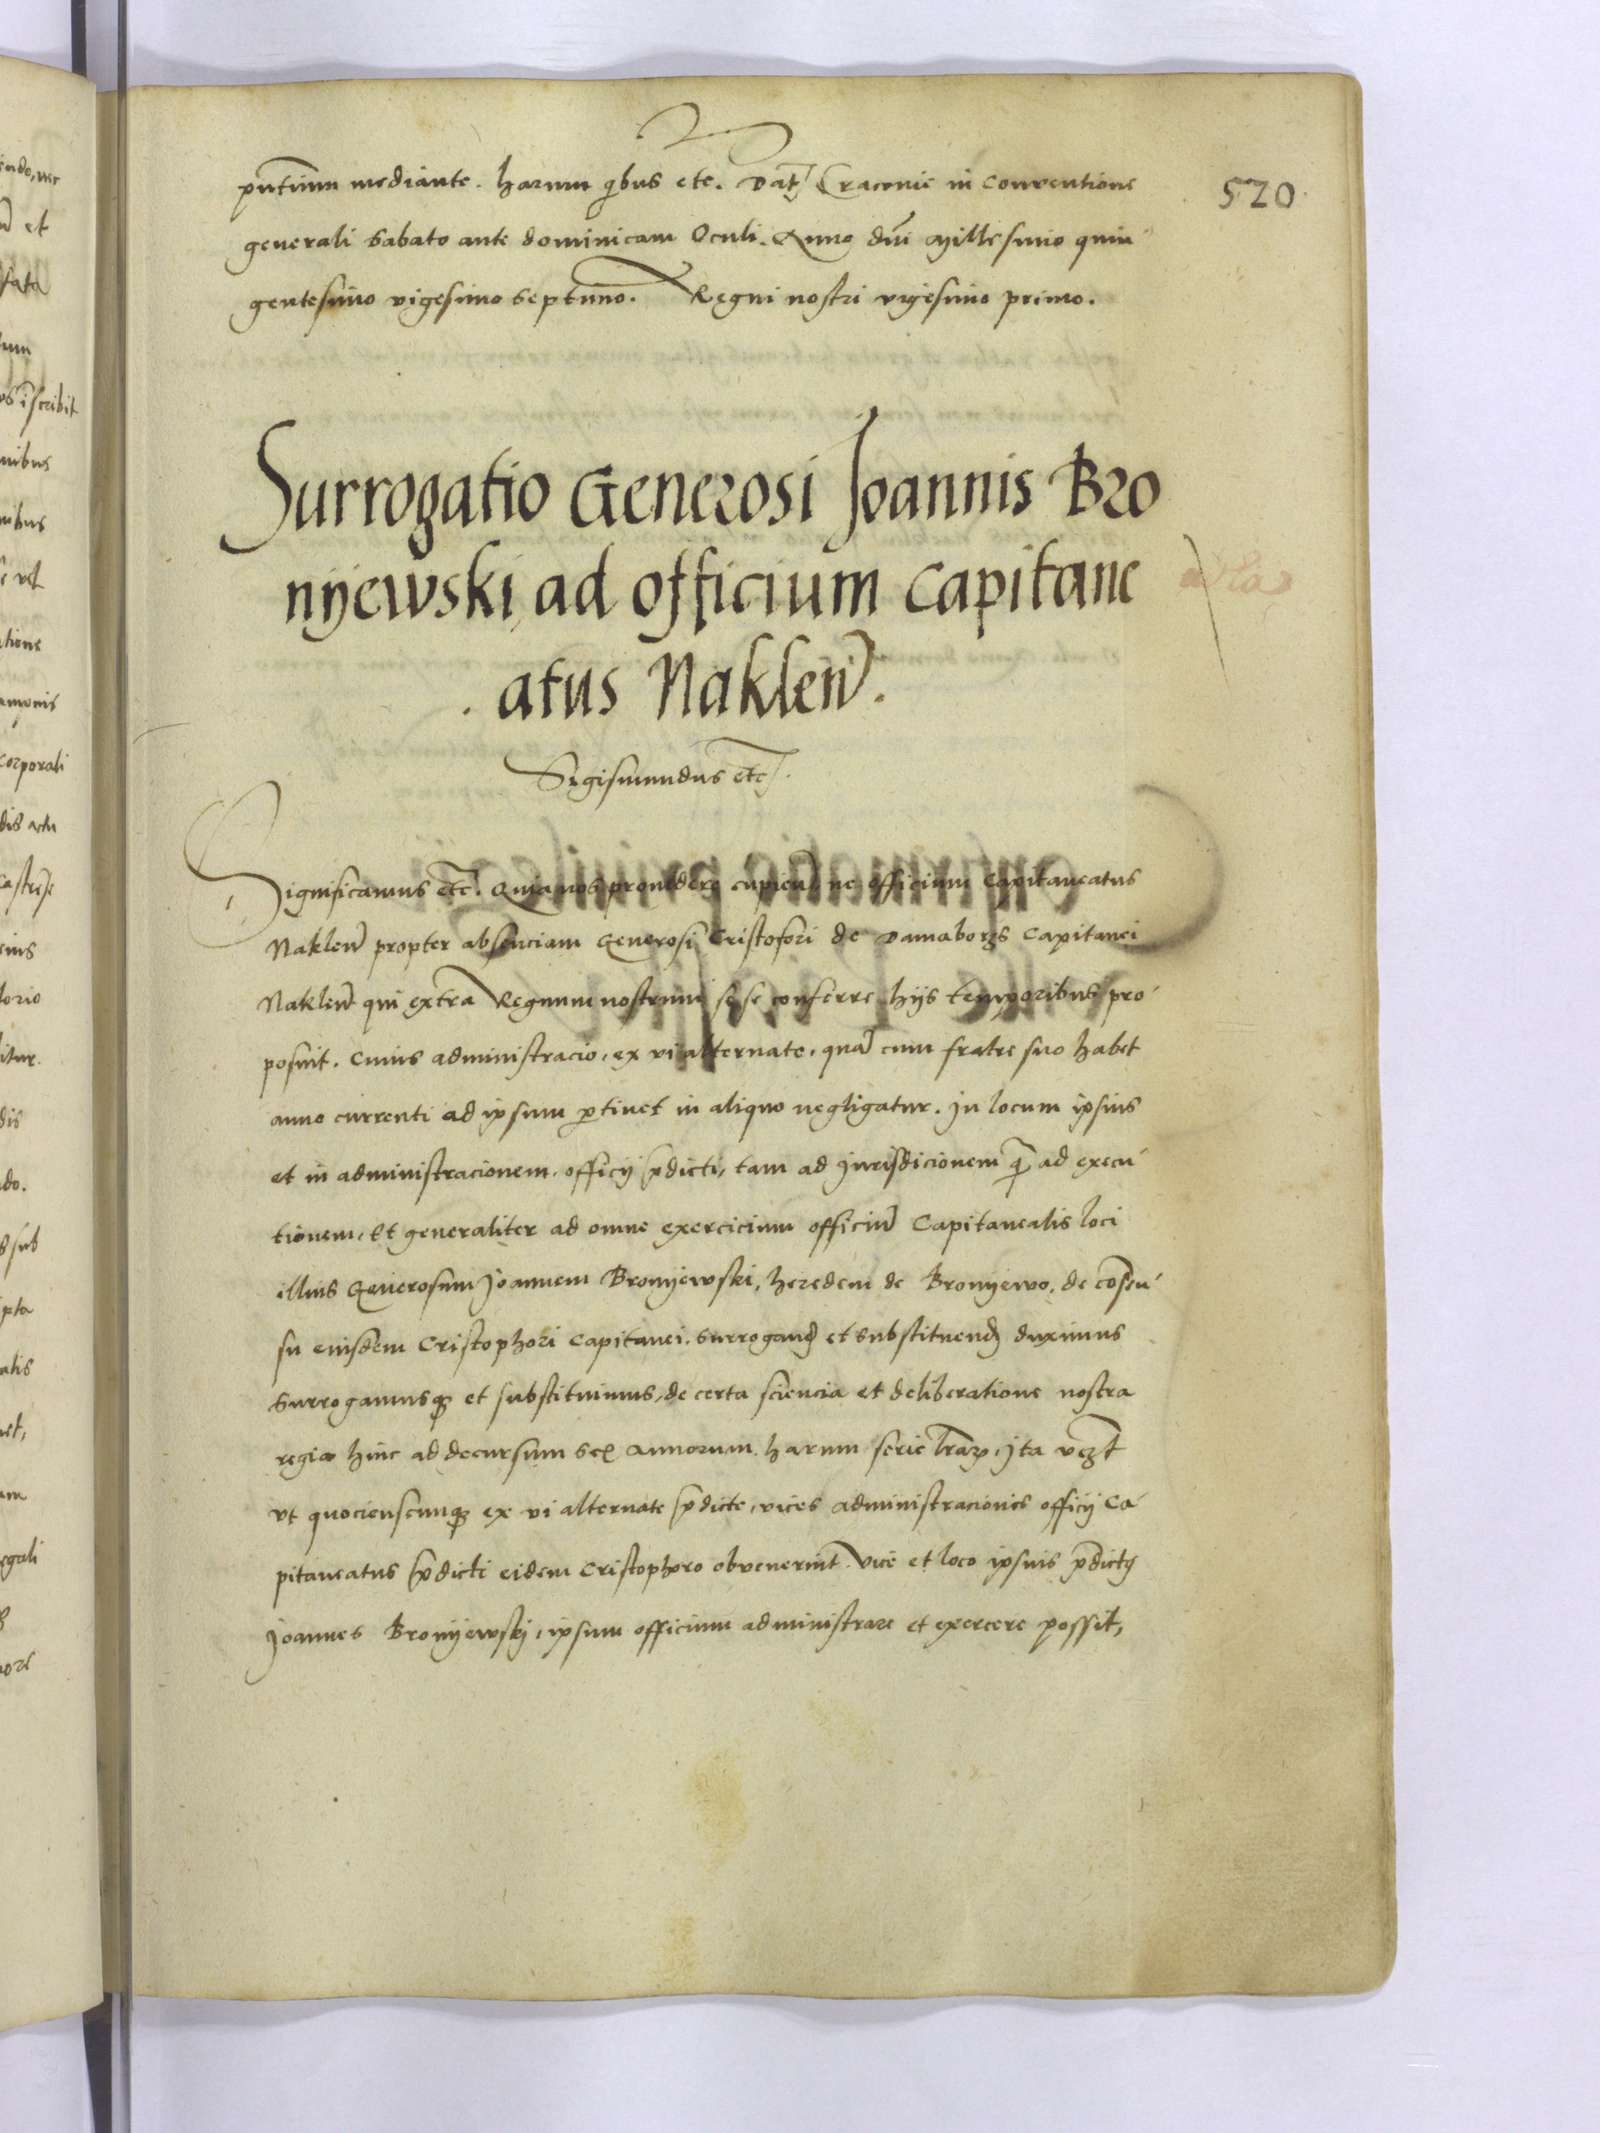 pñtium mediante. harum qbus etc. Dat Cracovie in Conventione
generali Sabato ante dominicam Oculi. Anno dñi Millesimo quin
gentesimo vigesimo septimo. Regni nostri vigesimo primo.
520
Surrogatio Generosi Joannis Bro
nyewski, ad officium Capitane
atus Naklen̄.
Sigismundus etc.
Significamus etc. Quia nos providere cupien̄ ne officium Capitaneatus
Naklen̄ propter absenciam Generosi Cristofori de Damaborzs Capitanei
Naklen̄ qui extra Regnum nostrum sese conferre hijs temporibus pro
posuit. Cuius administracio, ex vi alternate, quā cum fratre suo habet
anno currenti ad ipsum ꝑtinet in aliquo negligatur. In locum ipsius
et in administracionem officij p̄dicti, tam ad jurisdicionem q̄ ad execu
tionem, Et generaliter ad omne exercicium officiū Capitanealis loci
illius Generosum Joannem Bronyewski, heredem de Bronyewo, de cōsen
su eiusdem Cristophori Capitanei. Surrogand et substituend duximus
Surrogamusqꝫ et substituimus, de certa sciencia et deliberatione nostra
regia hinc ad decursum sex annorum harum serie lr̄aꝝ, Ita vezt
vt quocienscunqꝫ ex vi alternate p̄dicte, vices administracionis officij Ca
pitaneatus p̄dicti eidem Cristophoro obvenerint vice et loco ipsius p̄dictꝯ
Joannes Bronyewskj, ipsum officium administrare et exercere possit,